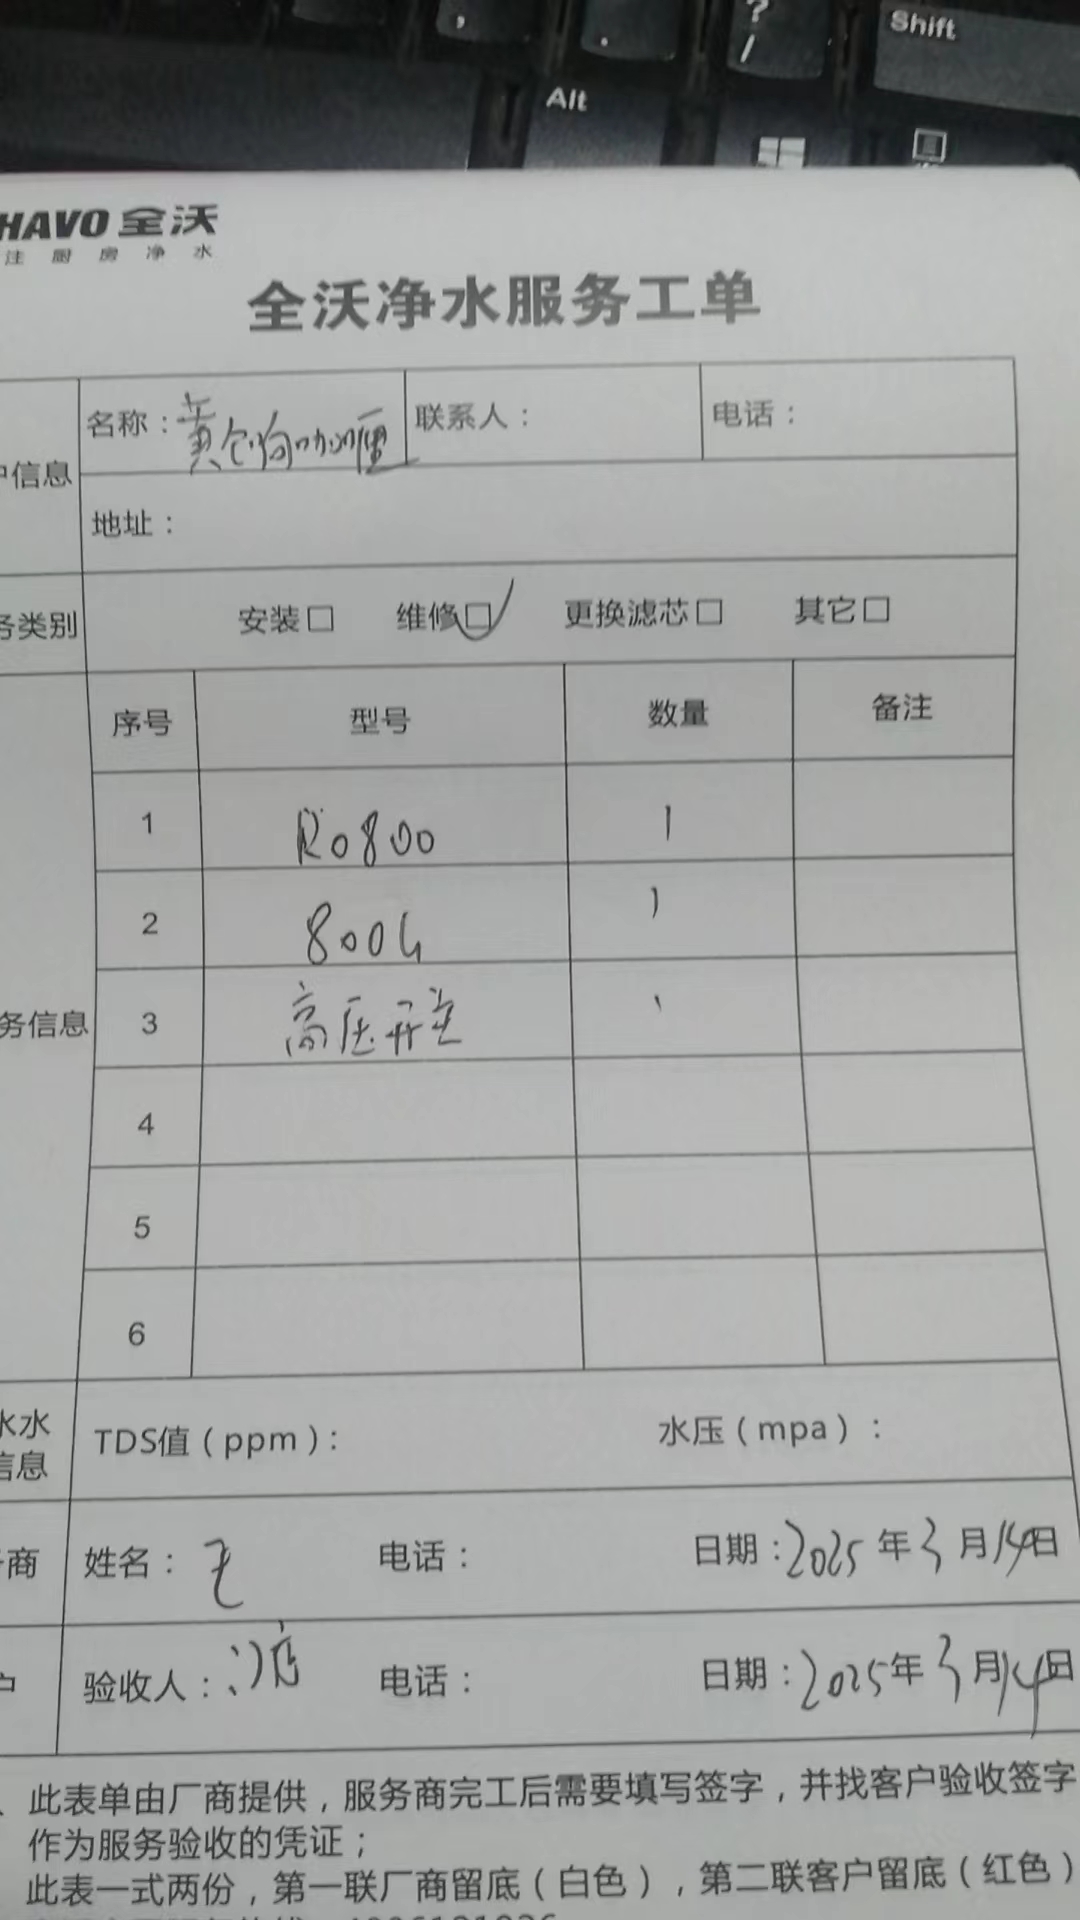 ?
/
Shift
Alt
HAVO 全沃
注厨房净水
全沃净水服务工单
名称：黄仓狗咖喱 联系人： 电话：
户信息
地址：
务类别 安装□ 维修□√ 更换滤芯□ 其它□
序号 型号 数量 备注
1 RO800 1
2 800G 1
务信息 3 高压开关 1
4
5
6
水水
信息
TDS值（ppm）： 水压（mpa）：
商 姓名： 电话： 日期：2025年3月14日
户 验收人： 电话： 日期：2025年3月14日
、此表单由厂商提供，服务商完工后需要填写签字，并找客户验收签字
作为服务验收的凭证；
此表一式两份，第一联厂商留底（白色），第二联客户留底（红色）